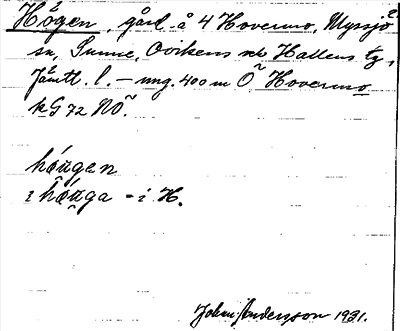 Högen, gård å 4 Hovermo, Myssjö
sn, Sunne, Ovikens och Hallens tg,
Jämtl. l. – ung. 400 m Ö Hovermo
kG 72 NÖ.
hóu̯gen
i hôu̯ga - i H.
Johan Anderson 1921.